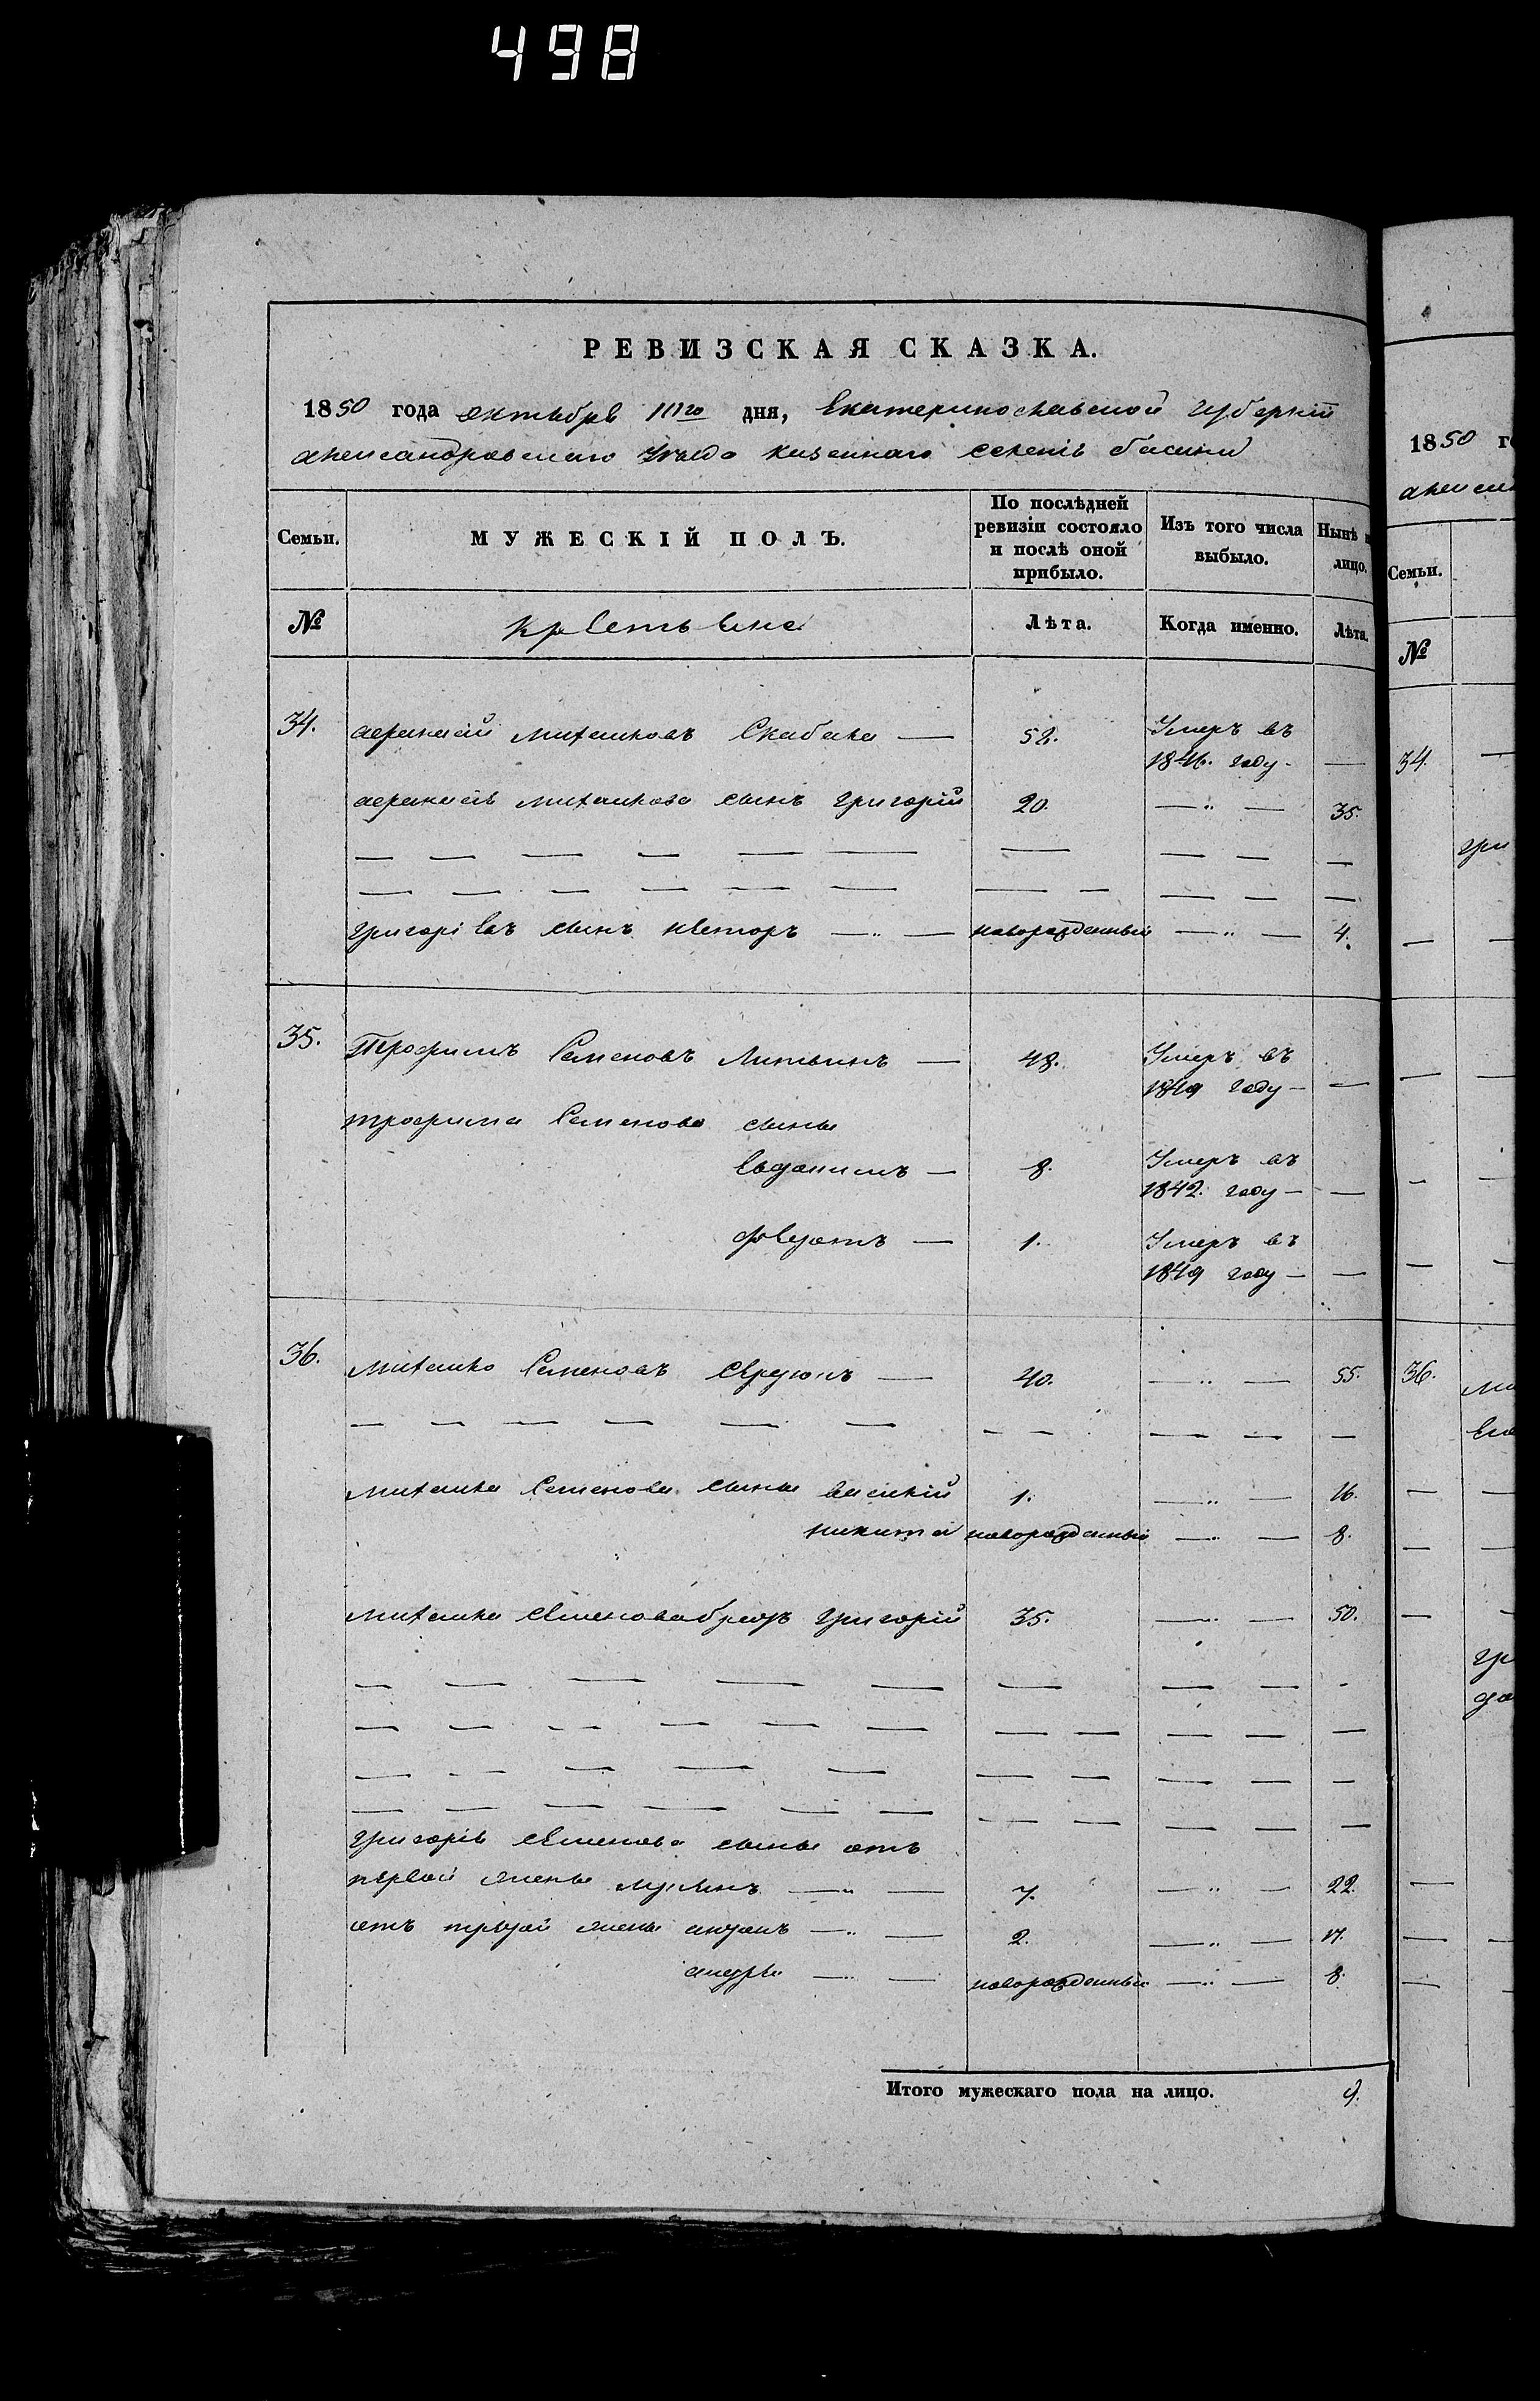 498
РЕВИЗСКАЯ СКАЗКА.
1850 года октября 11го дня, Екатеринославской губернии
александровскаго уезда казеннаго селения басани
Семьи. МУЖЕСКІЙ ПОЛЪ. По послѣдней ревизіи состояло и послѣ оной прибыло. Изъ того числа выбыло. Нынѣ лицо.
№ крестьяне Лѣта. Когда именно. Лѣта.
34. афанасій михайловъ Скабака — 52. Умеръ въ 1846. году — —
афанасія михайлова сынъ григорій 20. — „ — 35.
григоріевъ сынъ нестор — „ — новорожденный — „ — 4.
35. Трофимъ Семеновъ Литвинъ — 48. Умеръ въ 1849 году — —
трофима Семенова сыны
Евдокимъ — 8. Умеръ въ 1842. году — —
федотъ — 1. Умеръ въ 1849 году — —
36. михайло Семеновъ — 40. — „ — 55.
михайла Семенова сыны василій 1. — „ — 16.
никита новорожденный — „ — 8.
михайла семенова братъ григорій 35. — „ — 50.
григорія семенова сыны отъ
первой жены лукянъ — „ — 7. — „ — 22.
отъ другой жены — „ — 2. — „ — 17.
андрей — „ — новорожденный — „ — 8.
Итого мужескаго пола на лицо. 9.
1850
34.
36.
Семьи.
№